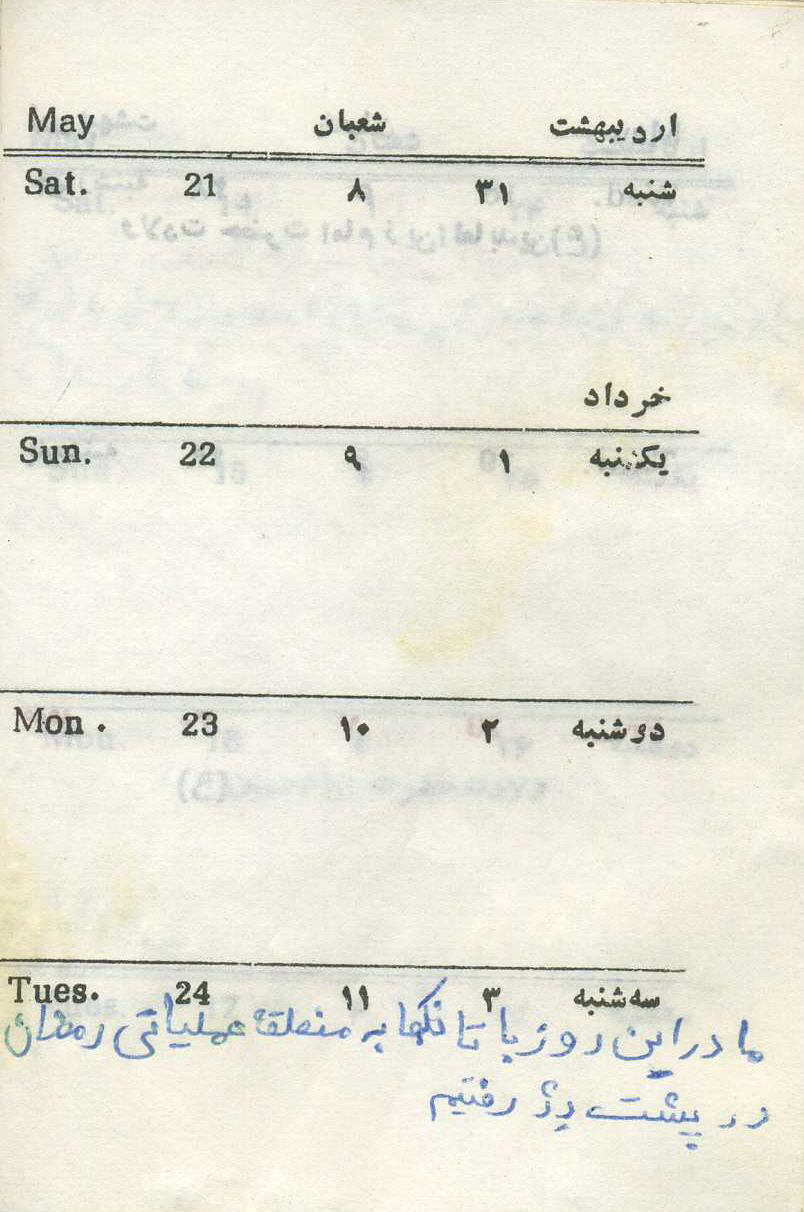 May شعبان اردیبهشت
Sat. 21 ۸ ۳۱ شنبه
خرداد
Sun. 22 ۹ ۱ یکشنبه
Mon. 23 ۱۰ ۲ دوشنبه
Tues. 24 ۱۱ ۳ سه‌شنبه
ما در این روز با تانکها به منطقه عملیاتی رمضان
در پشت دژ رفتیم